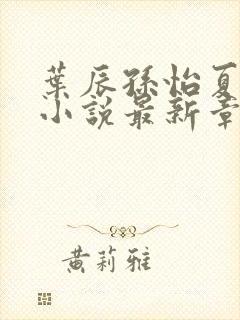 葉辰孫怡夏
小說最新章
黃莉雅